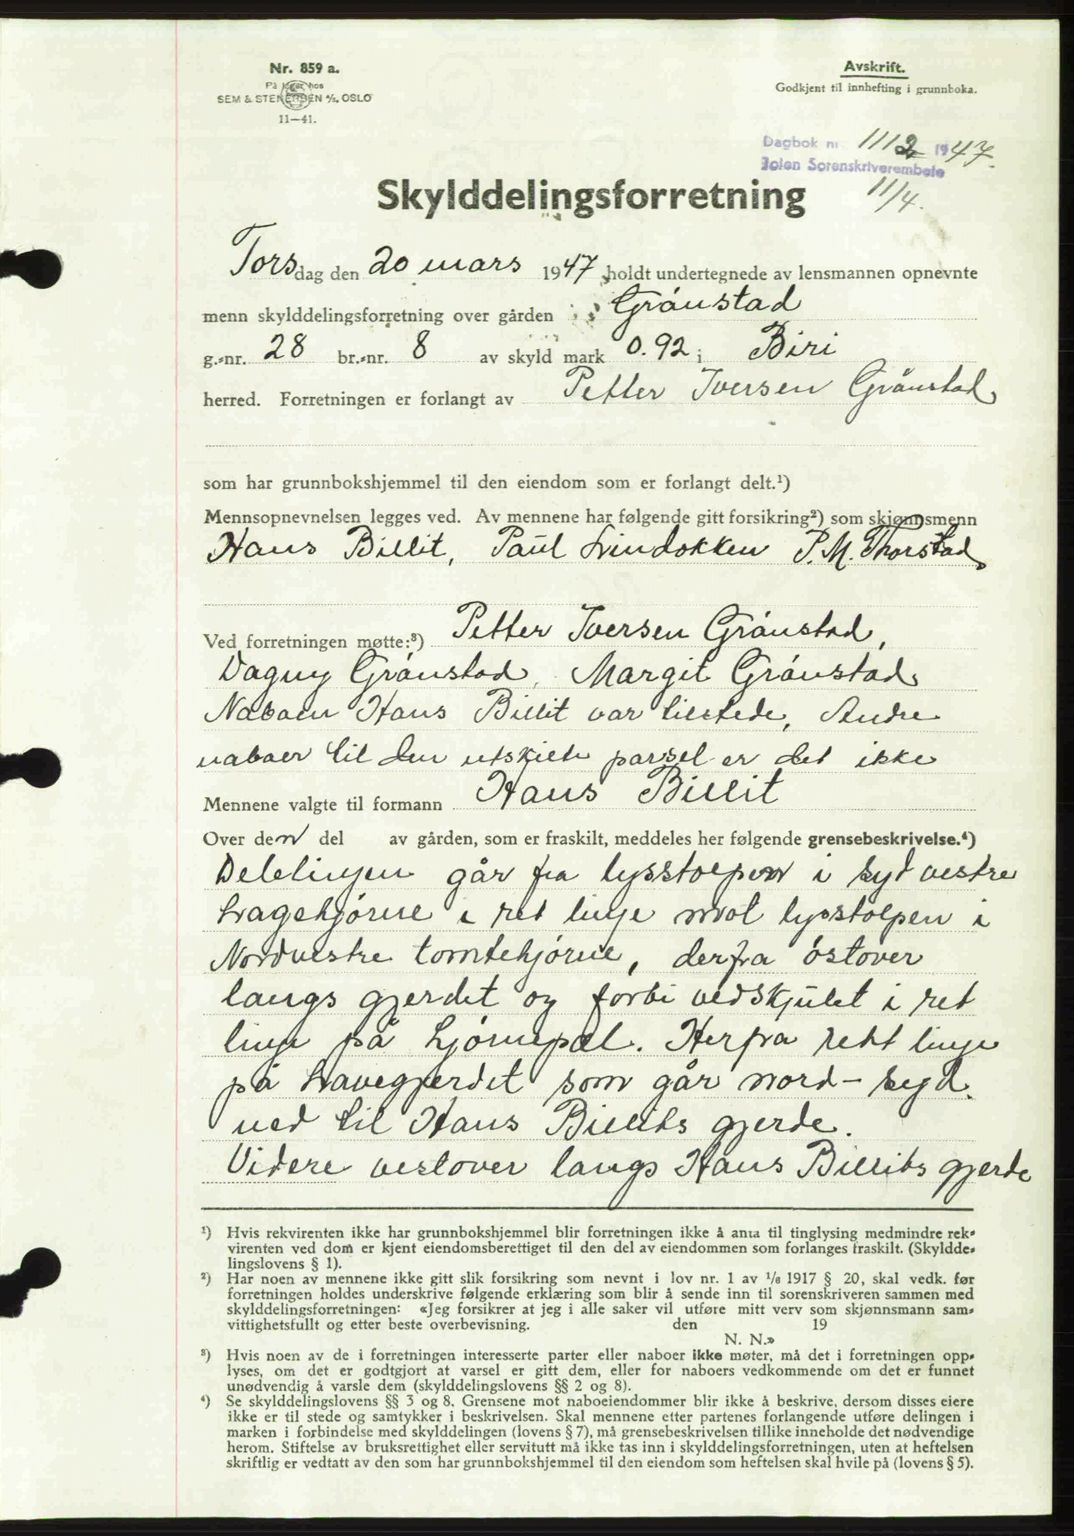 Nr. 859 a.
På lager hos
SEM & STENERSEN A/S, OSLO
11—41.
Avskrift.
Godkjent til innhefting i grunnboka.
Dagbok nr. 1112 1947.
Toten Sorenskriverembete
11/4.
Skylddelingsforretning
Torsdag den 20 mars 1947 holdt undertegnede av lensmannen opnevnte
menn skylddelingsforretning over gården Grånstad
g.-nr. 28 br.-nr. 8 av skyld mark 0.92 i Biri
herred. Forretningen er forlangt av Petter Iversen Grånstad
som har grunnbokshjemmel til den eiendom som er forlangt delt.¹)
Mennsopnevnelsen legges ved. Av mennene har følgende gitt forsikring²) som skjønnsmenn
Hans Billit, Paul Lindokken P. M. Thorstad
Ved forretningen møtte:³) Petter Iversen Grånstad,
Dagny Grånstad, Margit Grånstad
Naboen Hans Billit var tilstede, Andre
naboer til den utskilte parsel er det ikke
Mennene valgte til formann Hans Billit
Over den del av gården, som er fraskilt, meddeles her følgende grensebeskrivelse.⁴)
Delelinjen går fra lysstolpen i syd vestre
hagehjørne i ret linje mot lysstolpen i
Nordvestre tomtehjørne, derfra östover
langs gjerdet og forbi vedskjulet i ret
linje på hjørnepæl. Herfra rett linje
på havegjerdet som går nord - syd.
ned til Hans Billits gjerde.
Videre vestover langs Hans Billits gjerde
¹) Hvis rekvirenten ikke har grunnbokshjemmel blir forretningen ikke å anta til tinglysing medmindre rek-
virenten ved dom er kjent eiendomsberettiget til den del av eiendommen som forlanges fraskilt. (Skyldde-
lingslovens § 1).
²) Har noen av mennene ikke gitt slik forsikring som nevnt i lov nr. 1 av 1/6 1917 § 20, skal vedk. før
forretningen holdes underskrive følgende erklæring som blir å sende inn til sorenskriveren sammen med
skylddelingsforretningen: «Jeg forsikrer at jeg i alle saker vil utføre mitt verv som skjønnsmann sam-
vittighetsfullt og etter beste overbevisning. den 19
N. N.»
³) Hvis noen av de i forretningen interesserte parter eller naboer ikke møter, må det i forretningen opp-
lyses, om det er godtgjort at varsel er gitt dem, eller for naboers vedkommende om det er funnet
unødvendig å varsle dem (skylddelingslovens §§ 2 og 8).
⁴) Se skylddelingslovens §§ 3 og 8. Grensene mot naboeiendommer blir ikke å beskrive, dersom disses eiere
ikke er til stede og samtykker i beskrivelsen. Skal mennene etter partenes forlangende utføre delingen i
marken i forbindelse med skylddelingen (lovens § 7), må grensebeskrivelsen tillike inneholde det nødvendige
herom. Stiftelse av bruksrettighet eller servitutt må ikke tas inn i skylddelingsforretningen, uten at heftelsen
skriftlig er vedtatt av den som har grunnbokshjemmel til den eiendom som heftelsen skal hvile på (lovens § 5).